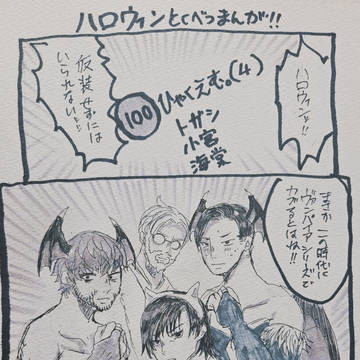 ハロウィンとくべつまんが!!
ハロウィン!!
100
ひゃくえむ。(4)
トガシ
小宮
海棠
仮装せずには
いられない!!
まさか この時代に
ヴァンパイアシリーズで
カブるとはね!!